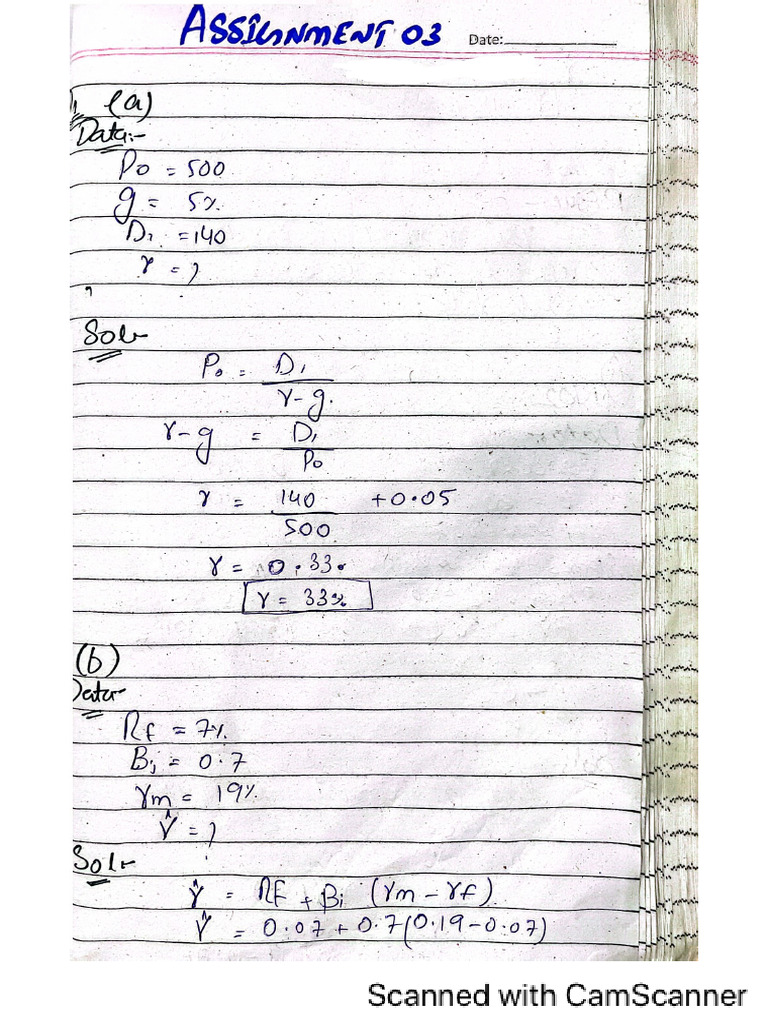 ASSIGNMENT 03 Date:
1 (a)
Data:-
Po = 500
g = 5%
D1 = 140
r = ?
Sol:-
Po = D1 / r-g
r-g = D1 / Po
r = 140 / 500 + 0.05
r = 0.33
r = 33%
(b)
Data:-
Rf = 7%
Bj = 0.7
rm = 19%
r̂ = ?
Sol:-
r̂ = Rf + Bi (rm - rf)
r̂ = 0.07 + 0.7(0.19-0.07)
Scanned with CamScanner